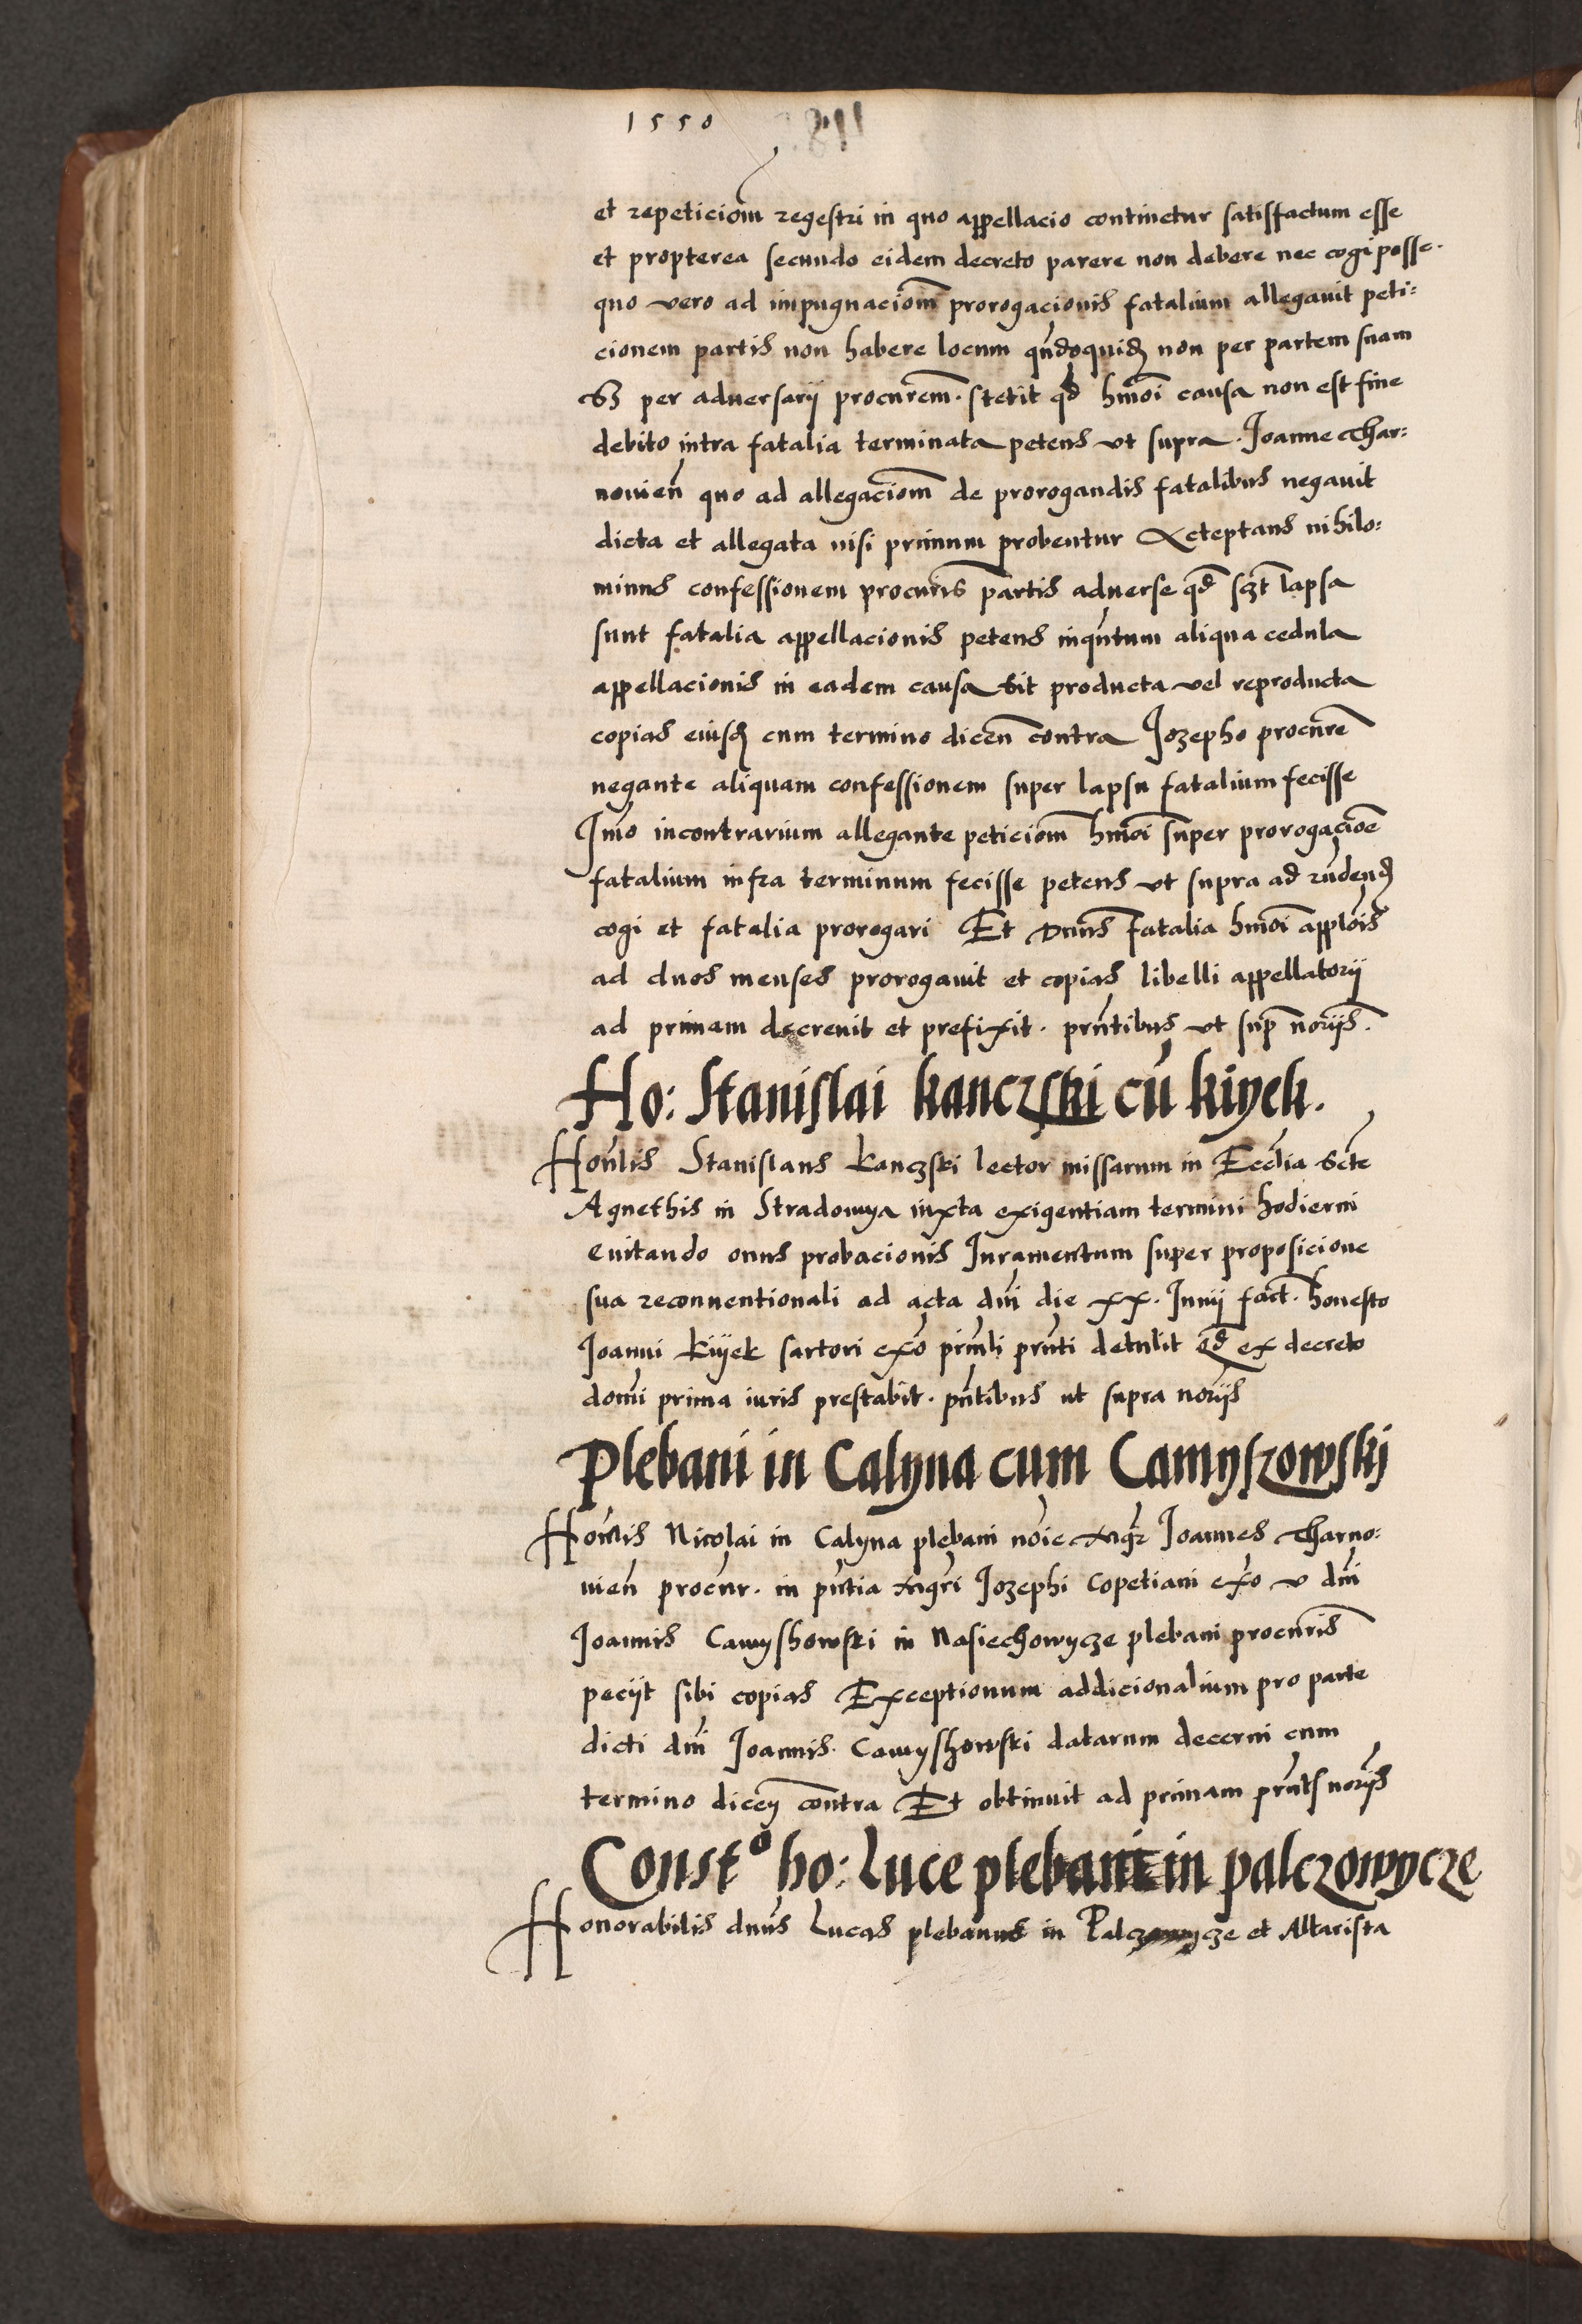 1550
et repeticiom̄ regestri in quo appellacio continetur satisfactum esse
et propterea secundo eidem decreto parere non debere nec cogi posse.
quo vero ad impugnaciom̄ prorogacionis fatalium allegauit peti=
cionem partis non habere locum qn̄doquid₉ non per partem suam
Sz per aduersarij procurem̄. stetit qd̄ hmōi causa non est fine
debito intra fatalia terminata petens vt supra. Joanne Thar=
nouien̄ quo ad allegaciom̄ de prorogandis fatalibus negauit
dicta et allegata nisi primum probentur Acceptans nihilo=
minus confessionem procurīs partis aduerse qd̄ lapsa
sunt fatalia appellacionis petens inqn̄tum aliqua cedula
appellacionis in eadem causa sit producta vel reproducta
copias eiusd₉ cum termino dicen̄ contra Jozepho procurē
negante aliquam confessionem super lapsu fatalium fecisse
Jmo incontrarium allegante peticiom̄ hmōi super prorogacioē
fatalium infra terminum fecisse petens vt supra ad rn̄dend₉
cogi et fatalia prorogari Et Dnūs fatalia hmōi applōis
ad duos menses prorogauit et copias libelli appellatorij
ad primam decreuit et prefixit. prn̄tibus vt sup̄ norijs.
Ho: Stanislai kanczski cū kiyek.
Hon̄lis Stanislaus kanczski lector missarum in Ecc̄lia Scte
Agnethis in Stradomya iuxta exigentiam termini hodierni
euitando onus probacionis Juramentum super proposicione
sua reconuentionali ad acta dnī die xx. Junij fact̄. honesto
Joanni kiyek sartori exō prin̄li prn̄ti detulit qd̄ ex decreto
domī prima iuris prestabit. pn̄tibus ut supra norijs
Plebani in Calyna cum Camyszowskj
Hon̄lis Nicolai in Calyna plebani noīe Mgr̄ Joannes Tharno=
uien̄ procur̄. in pn̄tia Mgr̄i Jozephi Copetiani exō v dnī
Joannis Camyshowski in Nasiechowycze plebani procurīs
peciit sibi copias Exceptionum addicionalium pro parte
dicti dnī Joannis. Camyshowski datarum decerni cum
termino dicen̄ contra Et obtinuit ad primam prn̄ts norijs
Const⁰ ho: Luce plebani in palczowycze
Honorabilis dnūs Lucas plebanus in Palczowycze et Altarista